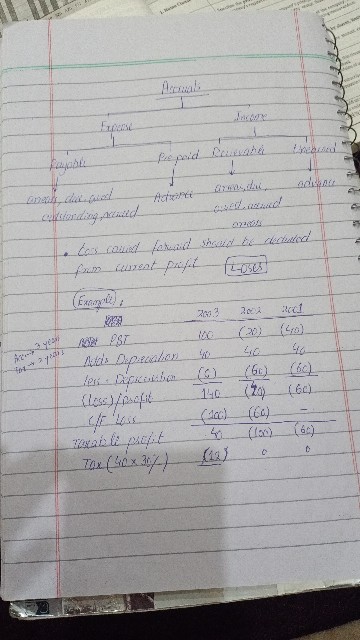 Accruals
Expense Income
Payable Prepaid Receivable Unearned
arrears, due, owed Advance arrears, due, advance
outstanding, accrued owed, accrued
arrears
• Loss carried forward should be deducted
from current profit
Example:
2003 2002 2001
PBT 100 (20) (40)
Add: Depreciation 40 40 40
less: Depreciation (60) (60)
(Loss)/profit 140 (60)
C/F Loss (100) (60) -
Taxable profit 40 (100) (60)
Tax (40 x 30%) (12) 0 0
3 years
2 years